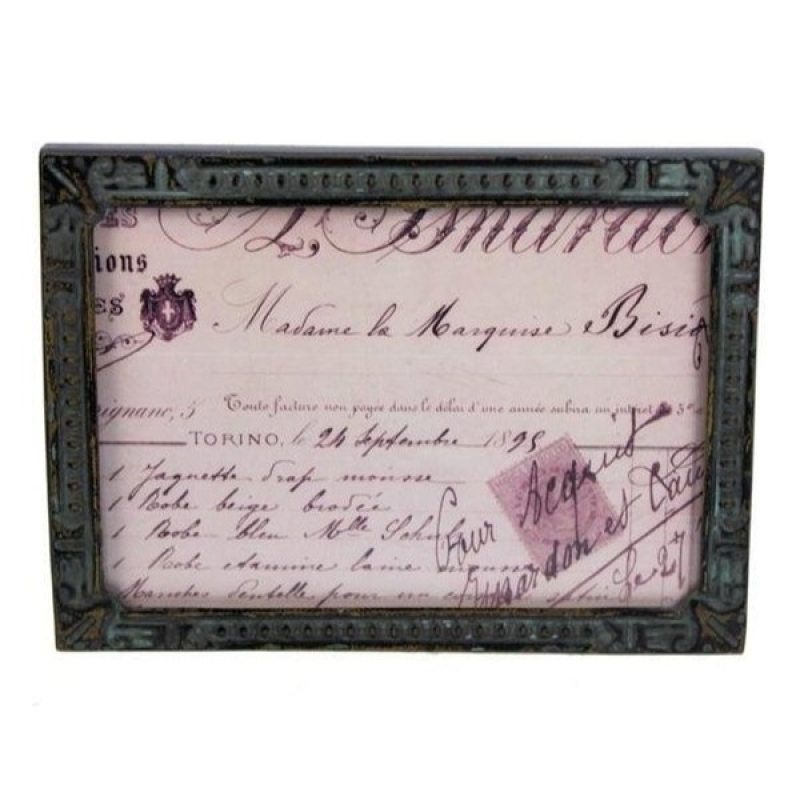 ES
ions
ES
Madame la Marquise
ignano, 5 Toute facture non payée dans le délai d'une année subira un intérêt de 5%
TORINO, le 24 Septembre 1895
1 Jaquette drap mousse
1 Robe beige brodée
1 Robe bleu Mlle
1 Robe etamine laine mousse
Manches dentelle pour un satin
Pour Acquit
et